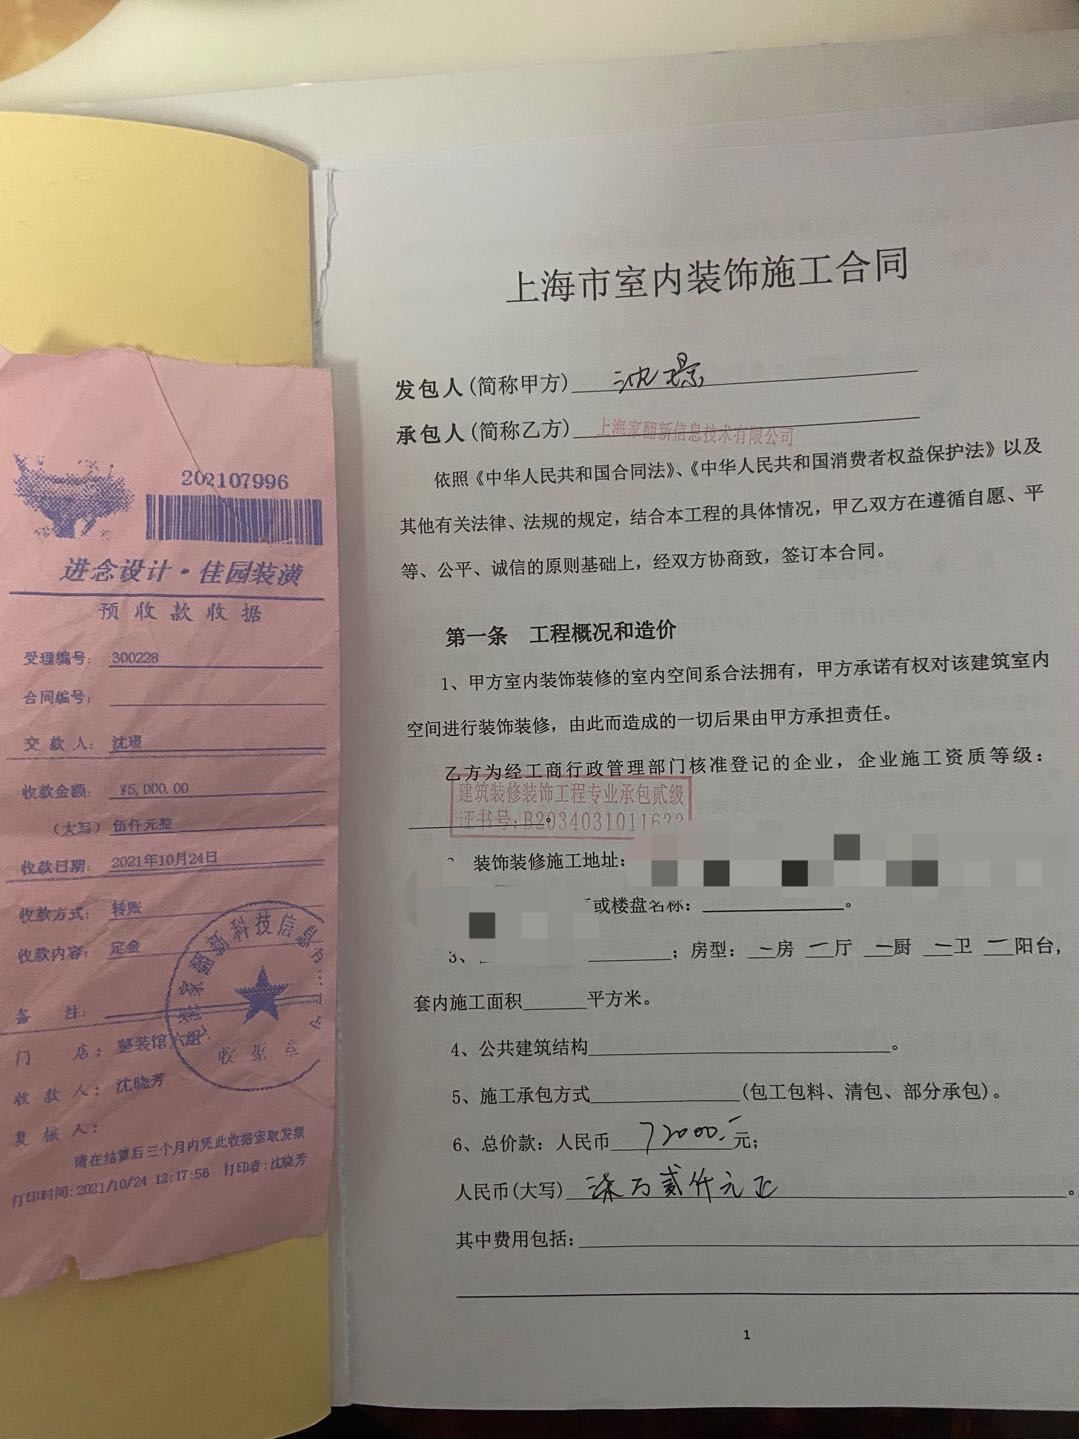 202107996
进念设计·佳园装潢
预收款收据
受理编号: 300228
合同编号:
交款人: 沈璟
收款金额: ¥5,000.00
(大写) 伍仟元整
收款日期: 2021年10月24日
收款方式: 转账
收款内容: 定金
备注:
门店: 整装馆六组
收款人: 沈晓芳
复核人:
请在结算后三个月内凭此收据索取发票
打印时间:2021/10/24 12:17:56 打印者:沈晓芳
家翻新科技信息
收据章
上海市室内装饰施工合同
发包人(简称甲方) 沈璟
承包人(简称乙方) 上海家翻新信息技术有限公司
依照《中华人民共和国合同法》、《中华人民共和国消费者权益保护法》以及
其他有关法律、法规的规定，结合本工程的具体情况，甲乙双方在遵循自愿、平
等、公平、诚信的原则基础上，经双方协商致，签订本合同。
第一条 工程概况和造价
1、甲方室内装饰装修的室内空间系合法拥有，甲方承诺有权对该建筑室内
空间进行装饰装修，由此而造成的一切后果由甲方承担责任。
乙方为经工商行政管理部门核准登记的企业，企业施工资质等级：
建筑装修装饰工程专业承包贰级
证书号:B2034031011632。
装饰装修施工地址:
或楼盘名称: 。
3、 ；房型: 一房 一厅 一厨 一卫 二阳台,
套内施工面积 平方米。
4、公共建筑结构 。
5、施工承包方式 (包工包料、清包、部分承包)。
6、总价款: 人民币 72000.- 元;
人民币(大写) 柒万贰仟元正 。
其中费用包括:
1